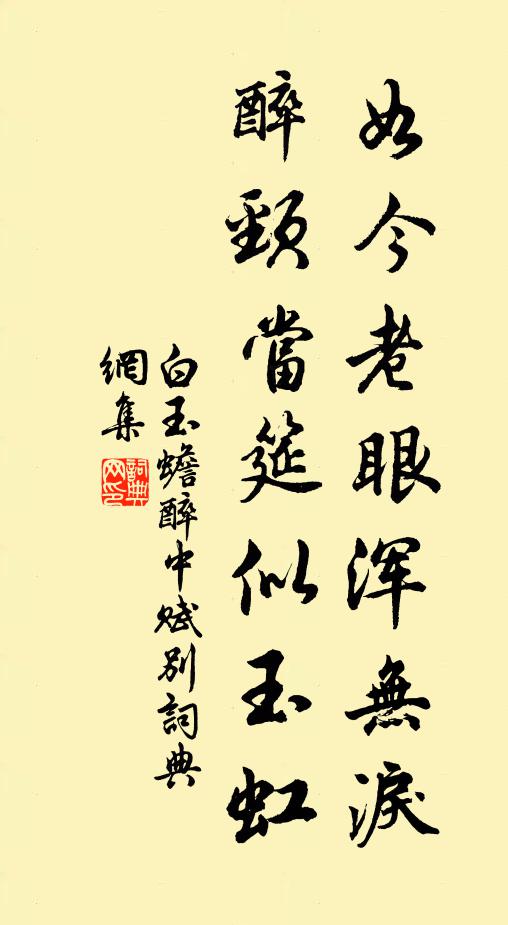 如今老眼浑無淚
醉頰當筵似玉虹
白玉蟾醉中賦别詞典
網集
詞典
网印